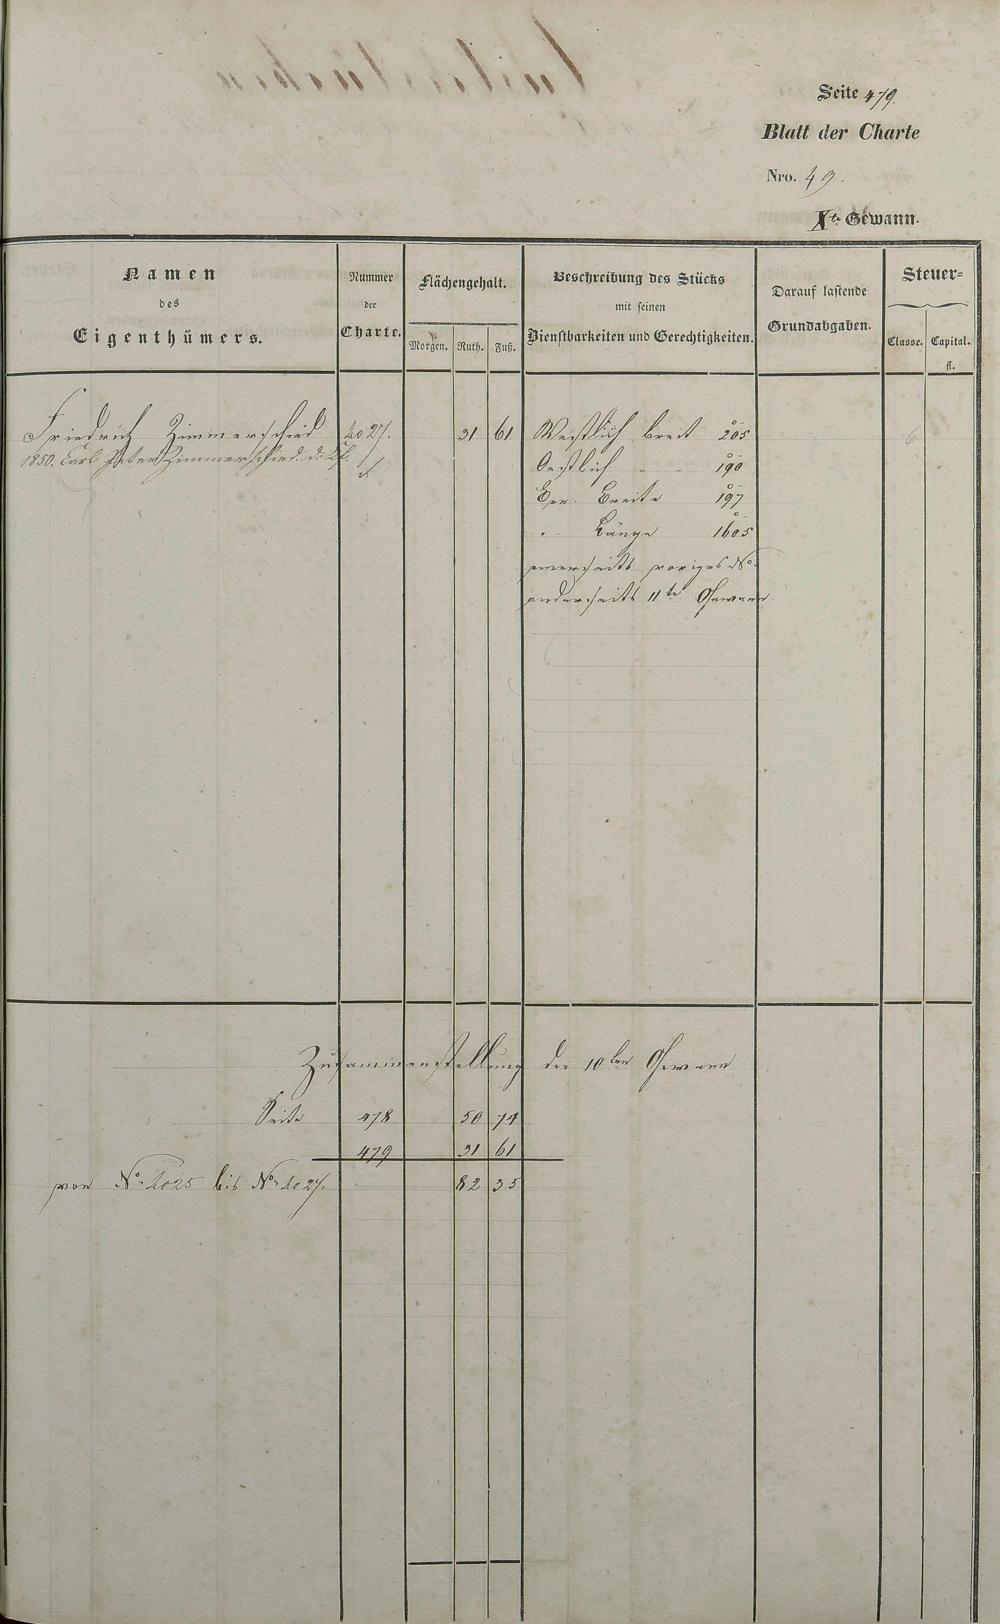 Seite 479.
Blatt der Charte
Nro. 49.
Xte Gewann.
Namen
des
Eigenthümers.
Nummer
der
Charte.
Flächengehalt.
Morgen. Ruth. Fuß.
Beschreibung des Stücks
mit seinen
Dienstbarkeiten und Gerechtigkeiten.
Darauf lastende
Grundabgaben.
Steuer=
Classe. Capital.
fl.
Friedrich Zimmerschied 4027. 31 61 Westlich breit 205 6
1850. Carl Peter Zimmerschied d.
Oestlich " " 190
Ber. Breite 197
" Länge 1605
einerseits voriges No.
anderseits 11te Gewann
Zusammenstellung der 10ten Gewann
Seite 478 50 74
479 31 61
von No. 4025 bis No. 4027. 82 35